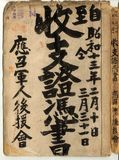 自昭和十三年二月十日
至全　三月三十一日
收支證憑書
應召軍人後援會